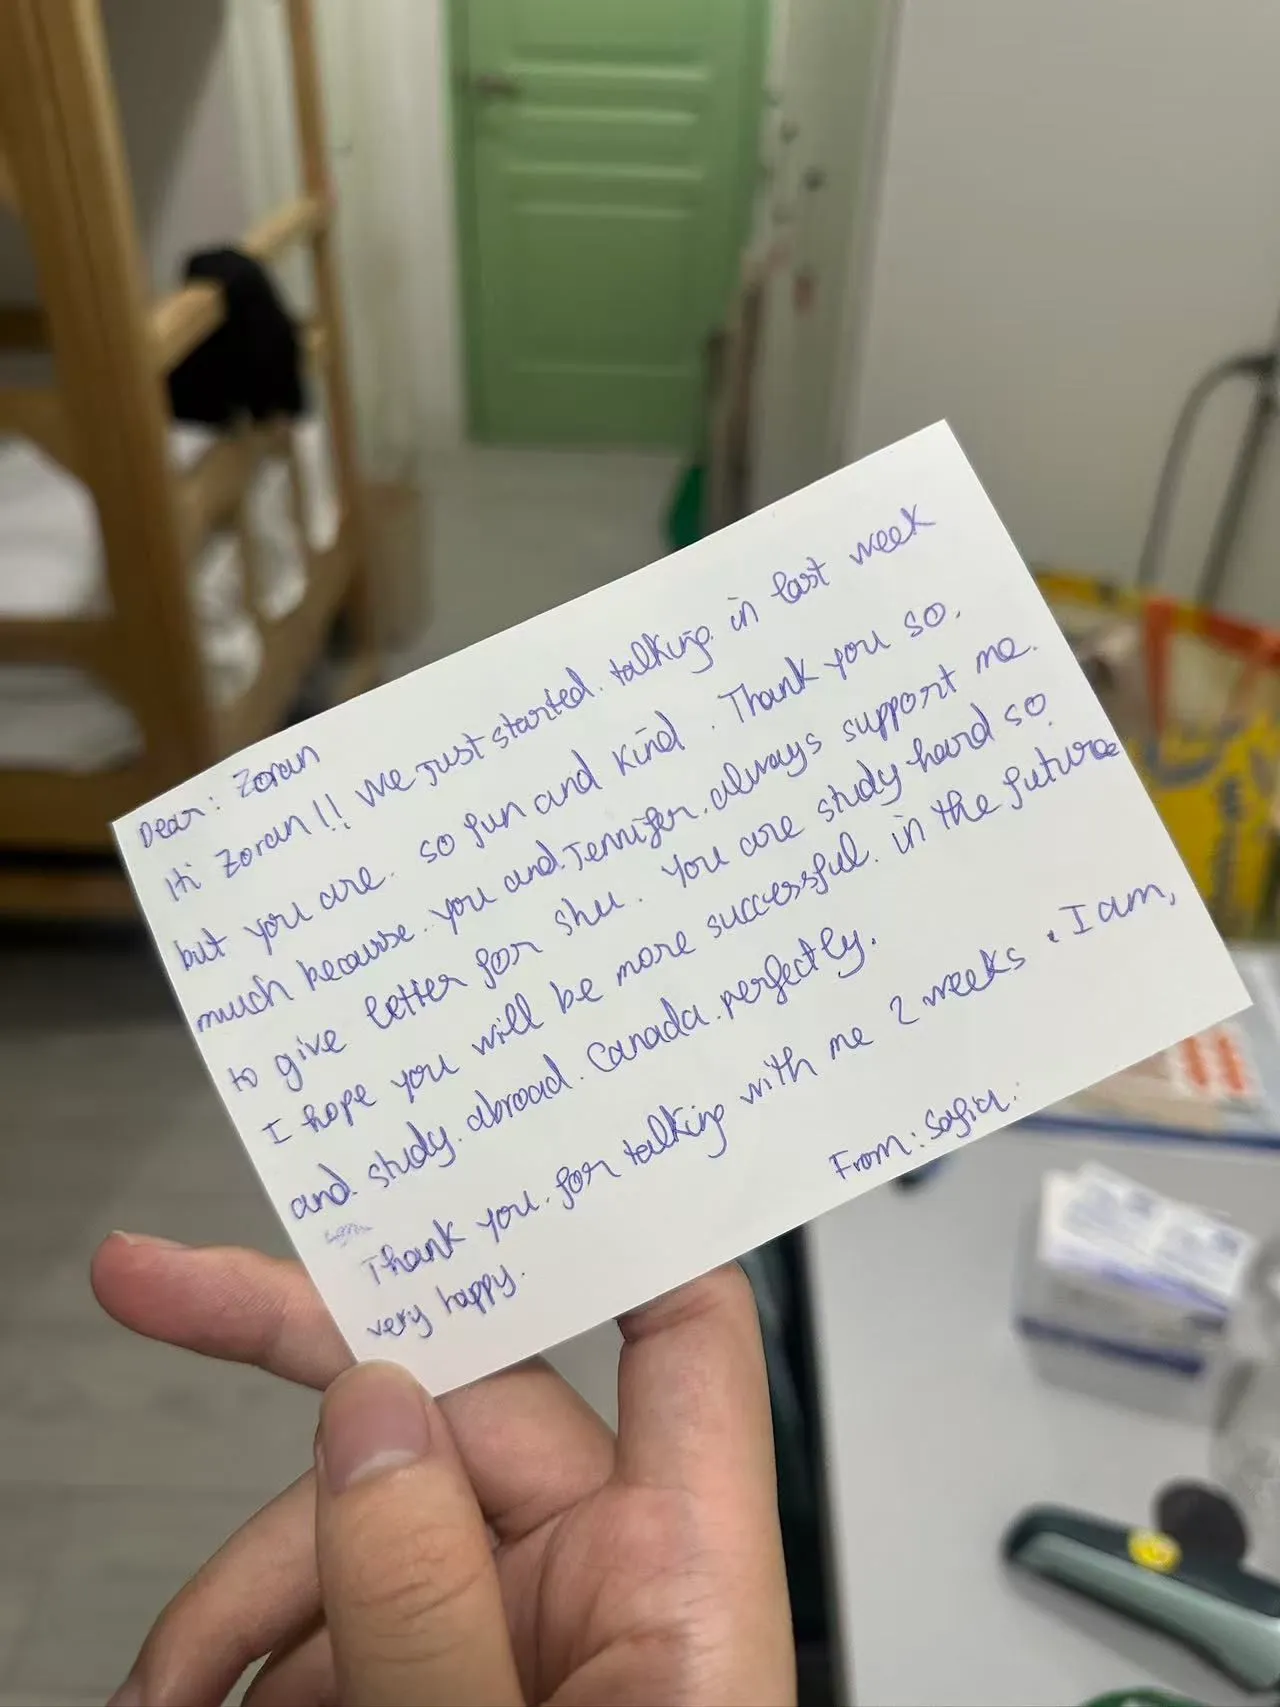 Dear: Zoran
Hi Zoran!! We just started. talking. in last week
but you are. so fun and kind. Thank you so.
much because. you and. Jennifer. always support me.
to give letter for shu. You are study hard so.
I hope you will be more successful. in the future
and. study. abroad. Canada. perfectly.
Thank you. for talking with me 2 weeks. I am,
very happy.
From: